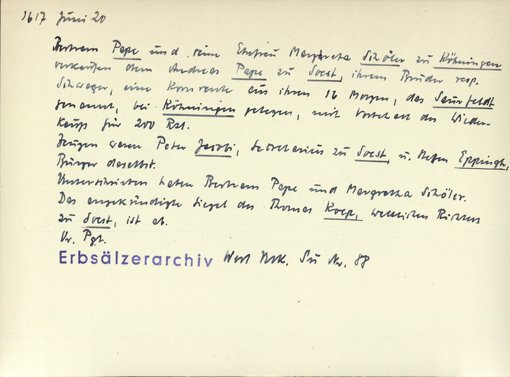 1617 Juni 20
Bertram Pape und seine Ehefrau Margareta Schöler zu Köhningen
verkaufen dem Andreas Pape zu Soest, ihrem Bruder resp.
Schwager, eine Kornrente aus ihren 12 Morgen, das Saurfeldt
genannt, bei Köhningen gelegen, mit Vorbehalt des Wieder-
kaufs für 200 Rtl.
Zeugen waren Peter Jacobi, Secretarius zu Soest, u. Eppingh,
Bürger daselbst.
Unterschrieben haben Bertram Pape und Margretha Schöler.
Das angekündigte Siegel des Thomas Koep, weltlichen Richters
zu Soest, ist ab.
Or. Pgt.
Erbsälzerarchiv Werl Urk. Nr. 88